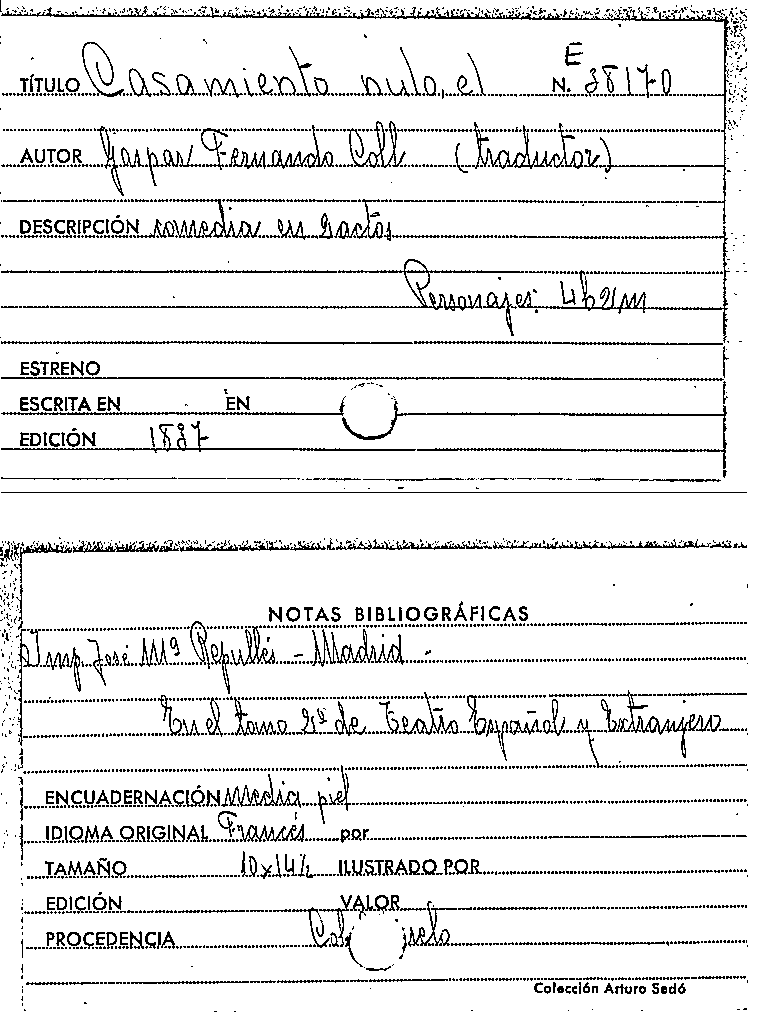 E
TÍTULO Casamiento nulo, el N. 38170
AUTOR Gaspar Fernando Coll (traductor)
DESCRIPCIÓN comedia en 2 actos
Personajes: 4h 2m
ESTRENO
ESCRITA EN EN
EDICIÓN 1837
NOTAS BIBLIOGRÁFICAS
Imp. José Mª Repullés - Madrid -
En el tomo 2º de Teatro Español y Extranjero
ENCUADERNACIÓN Media piel
IDIOMA ORIGINAL Francés por
TAMAÑO 10x14½ ILUSTRADO POR
EDICIÓN VALOR
PROCEDENCIA
Colección Arturo Sedó